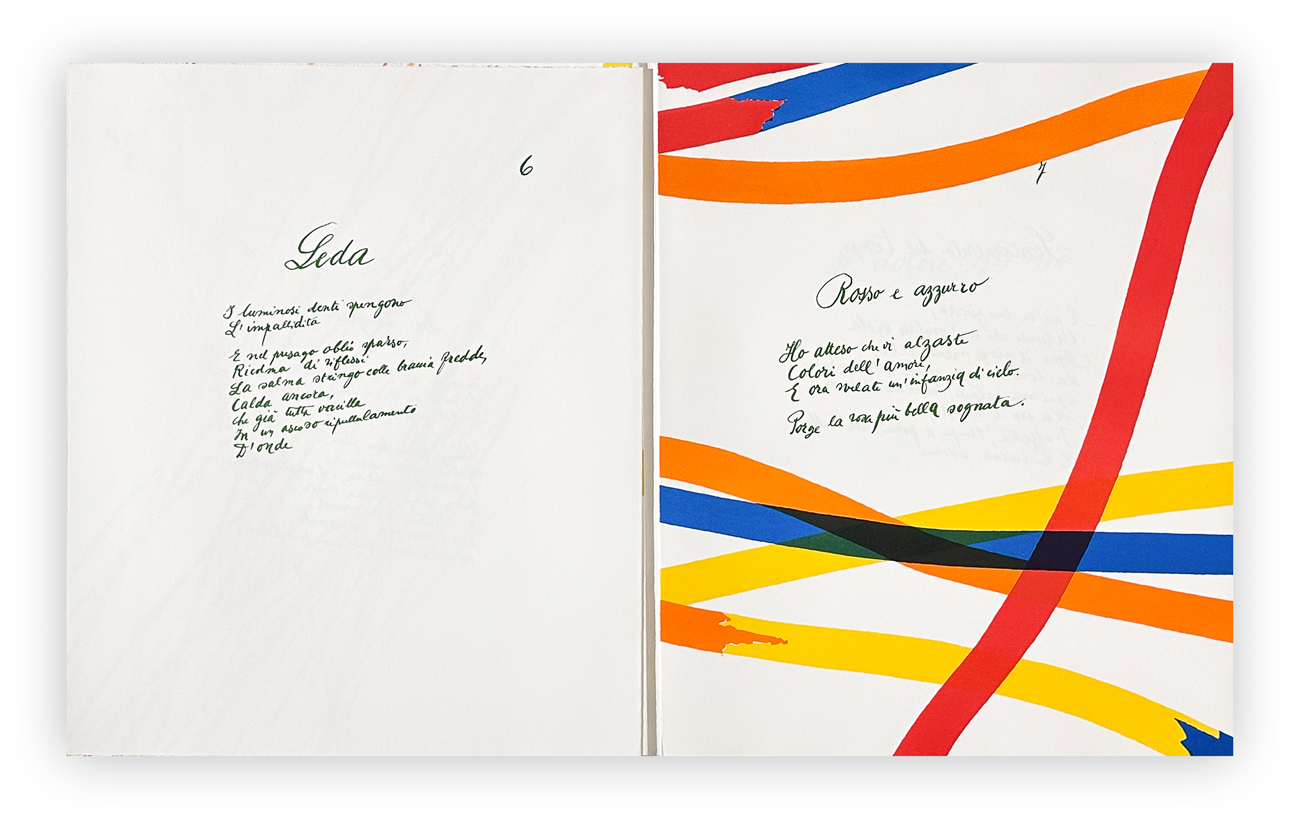 6
Leda
I luminosi denti spengono
L'impallidità
E nel presago oblio sparso,
Ricolma di riflessi
La salma stringo colle braccia fredde,
Calda ancora,
che già tutta vacilla
In un ascoso ripullulamento
D'onde
7
Rosso e azzurro
Ho atteso che vi alzaste
Colori dell'amore,
E ora svelate un'infanzia di cielo.
Porge la rosa più bella sognata.